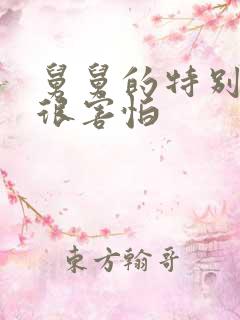 舅舅的特别
很害怕
東方翰哥